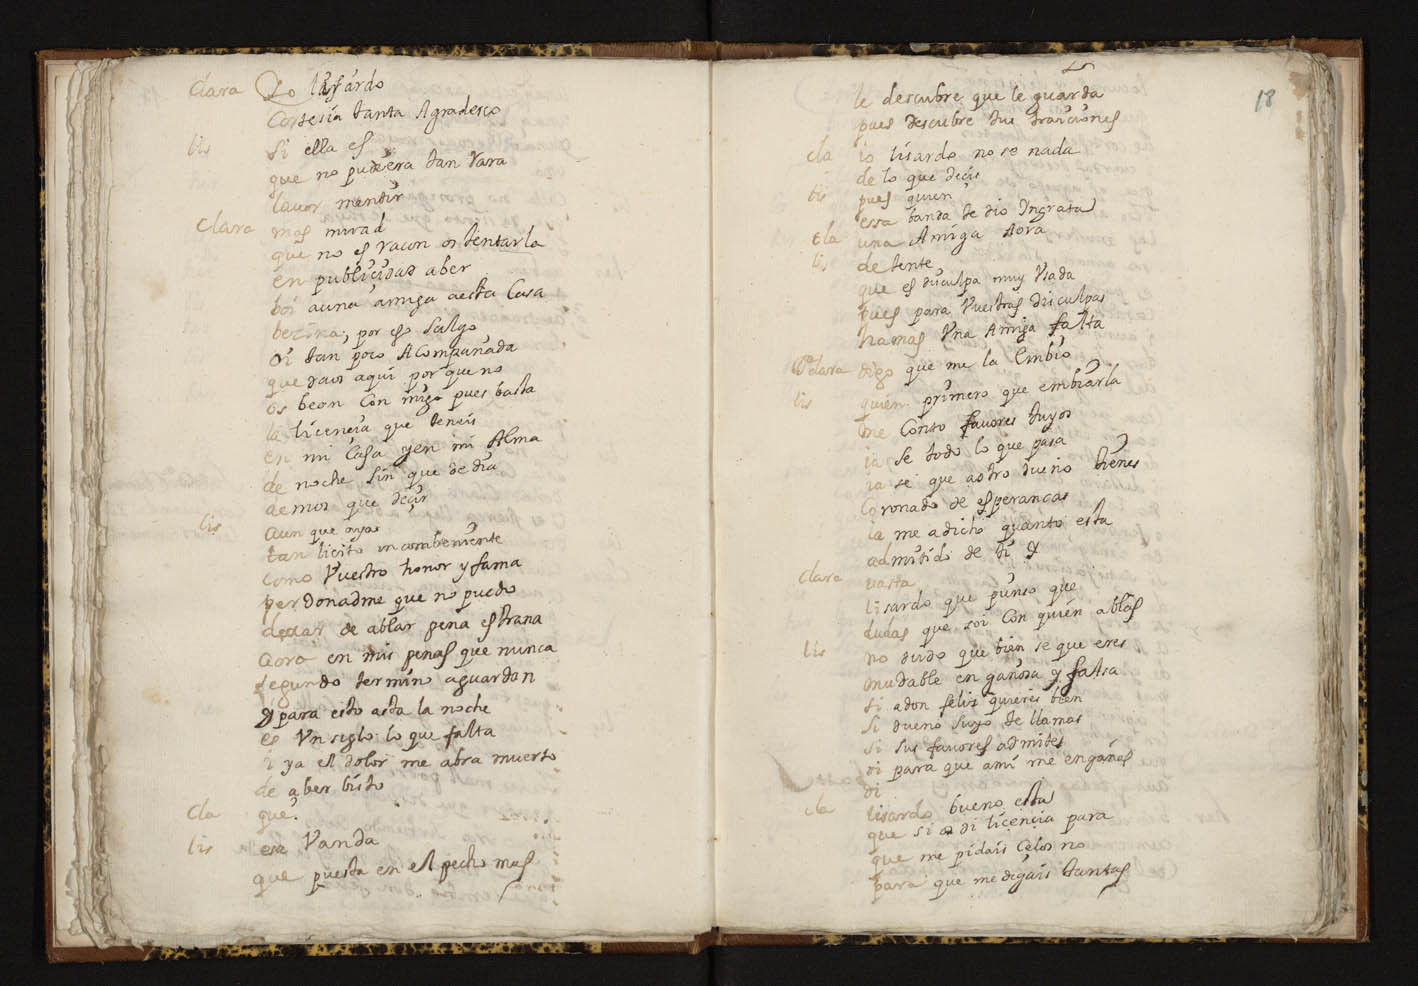 clara Lo lisardo
cortesia tanta Agradesco
lis si ella es
que no pudiera tan rara
lauor mentir
clara mas mirad
que no es racon ostentarla
en publicidad aber
boi a una amiga aesta Casa
becina, por eso salgo
oi tan poco Acompañada
que daos aqui por que no
os bean con migo pues basta
la licencia que teneis
en mi Casa yen mi Alma
de noche sin que de dia
demos que decir
lis aun que aya
tan licito incombeniente
como Vuestro honor y fama
perdonadme que no puedo
dejar de ablar pena estrana
aora en mis penas que nunca
segundo termino aguardan
y para esto asta la noche
es Vn siglo lo que falta
i ya el dolor me abra muerto
de aber bisto
cla que?
lis esa Vanda
que puesta en el pecho mas
18
le descubre que le guarda
pues descubre tue traiciones
cla io lisardo no se nada
de lo que decis
lis pues quien
essa banda te dio Ingrata
cla una Amiga Aora
lis detente
que es disculpa muy Vsada
pues para Vuestras disculpas
hamas Vna Amiga falta
clara digo que me la Embio
lis quien primero que embiarla
me Conto favores suyos
ia se todo lo que pasa
ia se que a otro dueño tienes
Coronado de esperancas
ia me a dicho quanto esta
admitido de ti y
clara uasta
lisardo que pienso que
dudas que soi con quien ablas
lis no dudo que bien se que eres
mudable engañosa y falsa
si a don felis quieres bien
si dueño suyo te llamas
si sus favores admites
di para que ami me engañas
di
cla lisardo bueno esta
que si os di licencia para
que me pidais Celos no
para que me digais tantas